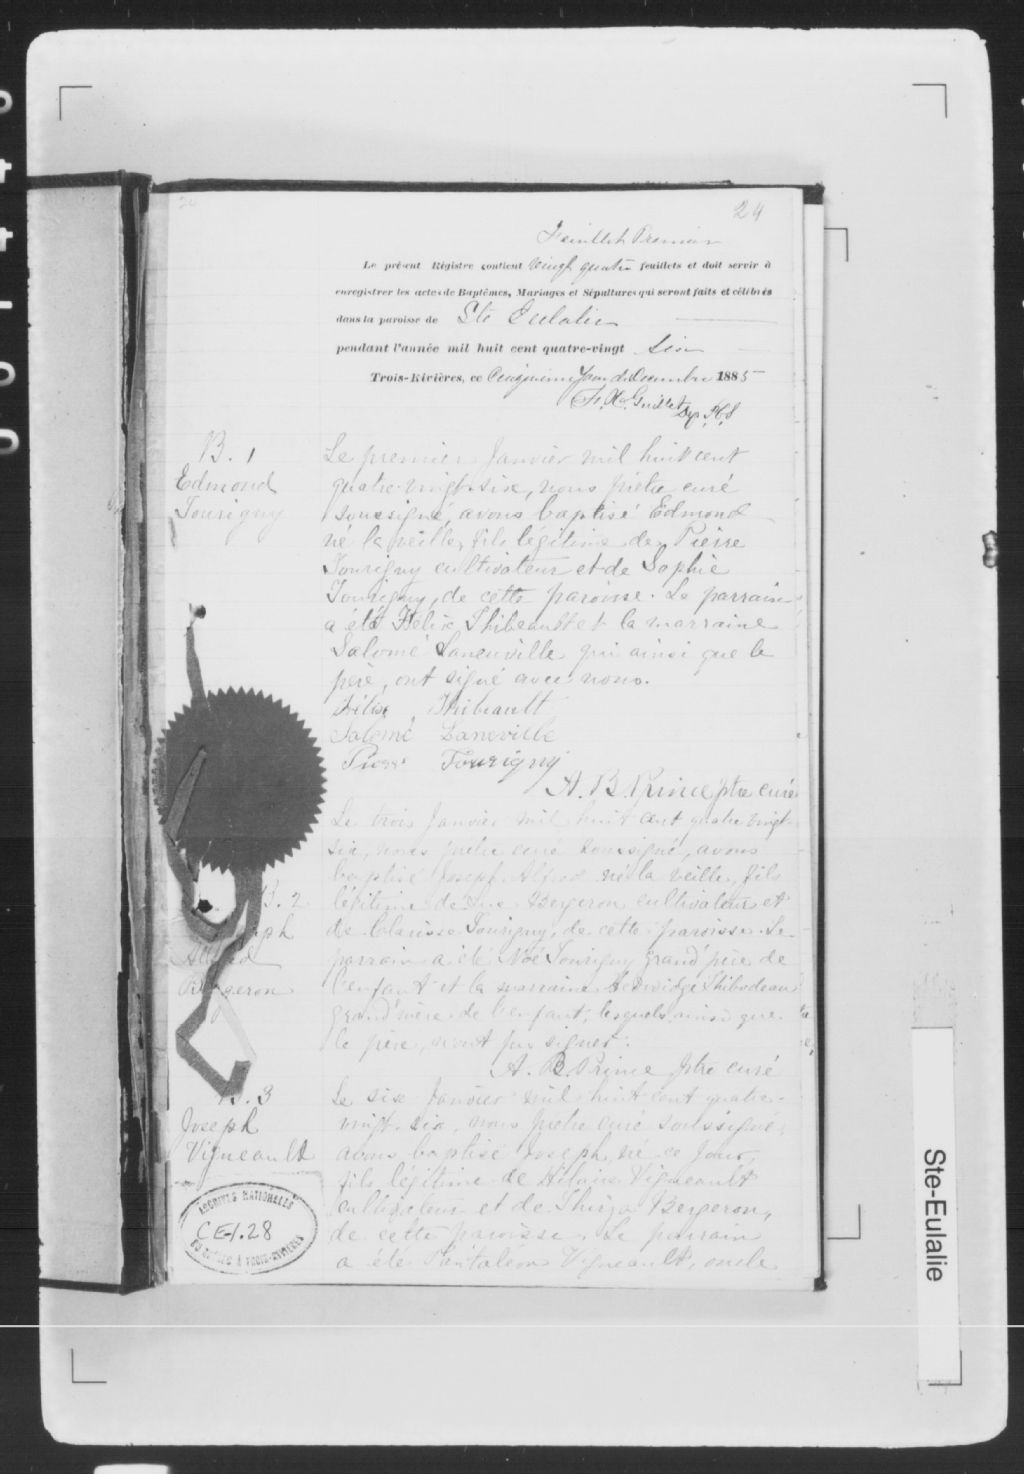 24
Feuillet Premier
Le présent Régistre contient vingt quatre feuillets et doit servir à
enregistrer les actes de Baptêmes, Mariages et Sépultures qui seront faits et célébrés
dans la paroisse de Ste Eulalie
pendant l'année mil huit cent quatre-vingt six
Trois-Rivières, ce Cinquième Jour de Décembre 1885
B. 1
Edmond
Tourigny
Le premier Janvier mil huit cent
quatre-vingt-six, nous prêtre curé
soussigné, avons baptisé Edmond
né la veille, fils légitime de Pierre
Tourigny cultivateur et de Sophie
Tourigny, de cette paroisse. Le parrain
a été Félix Thibeault et la marraine
Salomé Laneuville qui ainsi que le
père, ont signé avec nous.
Félix Thibeault
Salomé Laneville
Pierre Tourigny
A. B. Prince ptre curé
B. 2
Alfred
Bergeron
Le trois Janvier mil huit cent quatre vingt-
six, nous prêtre curé soussigné, avons
baptisé Joseph Alfred né la veille, fils
légitime de Luc Bergeron cultivateur et
de Clarisse Tourigny, de cette paroisse. Le
parrain a été Noé Tourigny grand'père de
l'enfant et la marraine Hedwidge Thibodeau
grand'mère de l'enfant, lesquels ainsi que
le père, n'ont pu signer.
A. B. Prince ptre curé
B. 3
Joseph
Vigneault
Le six Janvier mil huit cent quatre-
vingt-six, nous prêtre curé soussigné,
avons baptisé Joseph, né ce jour,
fils légitime de Hilaire Vigneault
cultivateur et de Thirza Bergeron,
de cette paroisse. Le parrain
a été Pantaléon Vigneault, oncle
ARCHIVES NATIONALES
CE-1.28
DU QUÉBEC À TROIS-RIVIÈRES
Ste-Eulalie